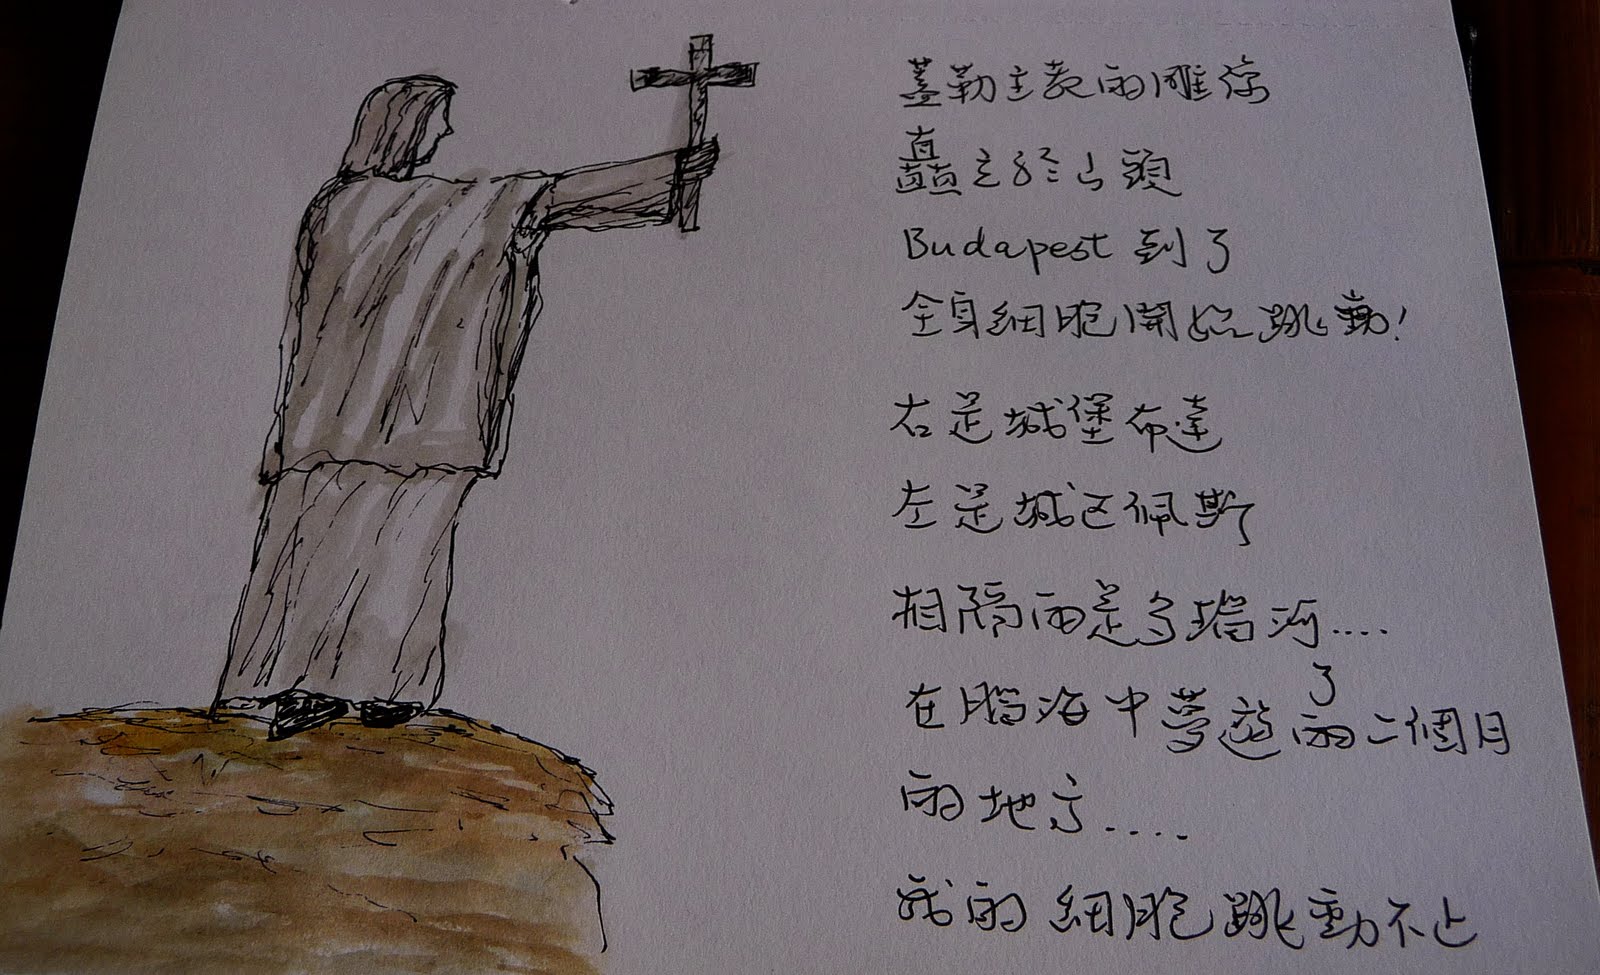 蓋勒主教的雕像
矗立於山頭
Budapest 到了
全身細胞開始跳動!
右是城堡布達
左是城区佩斯
相隔的是多瑙河....
在腦海中夢遊了的二個月
的地方.....
我的細胞跳動不止